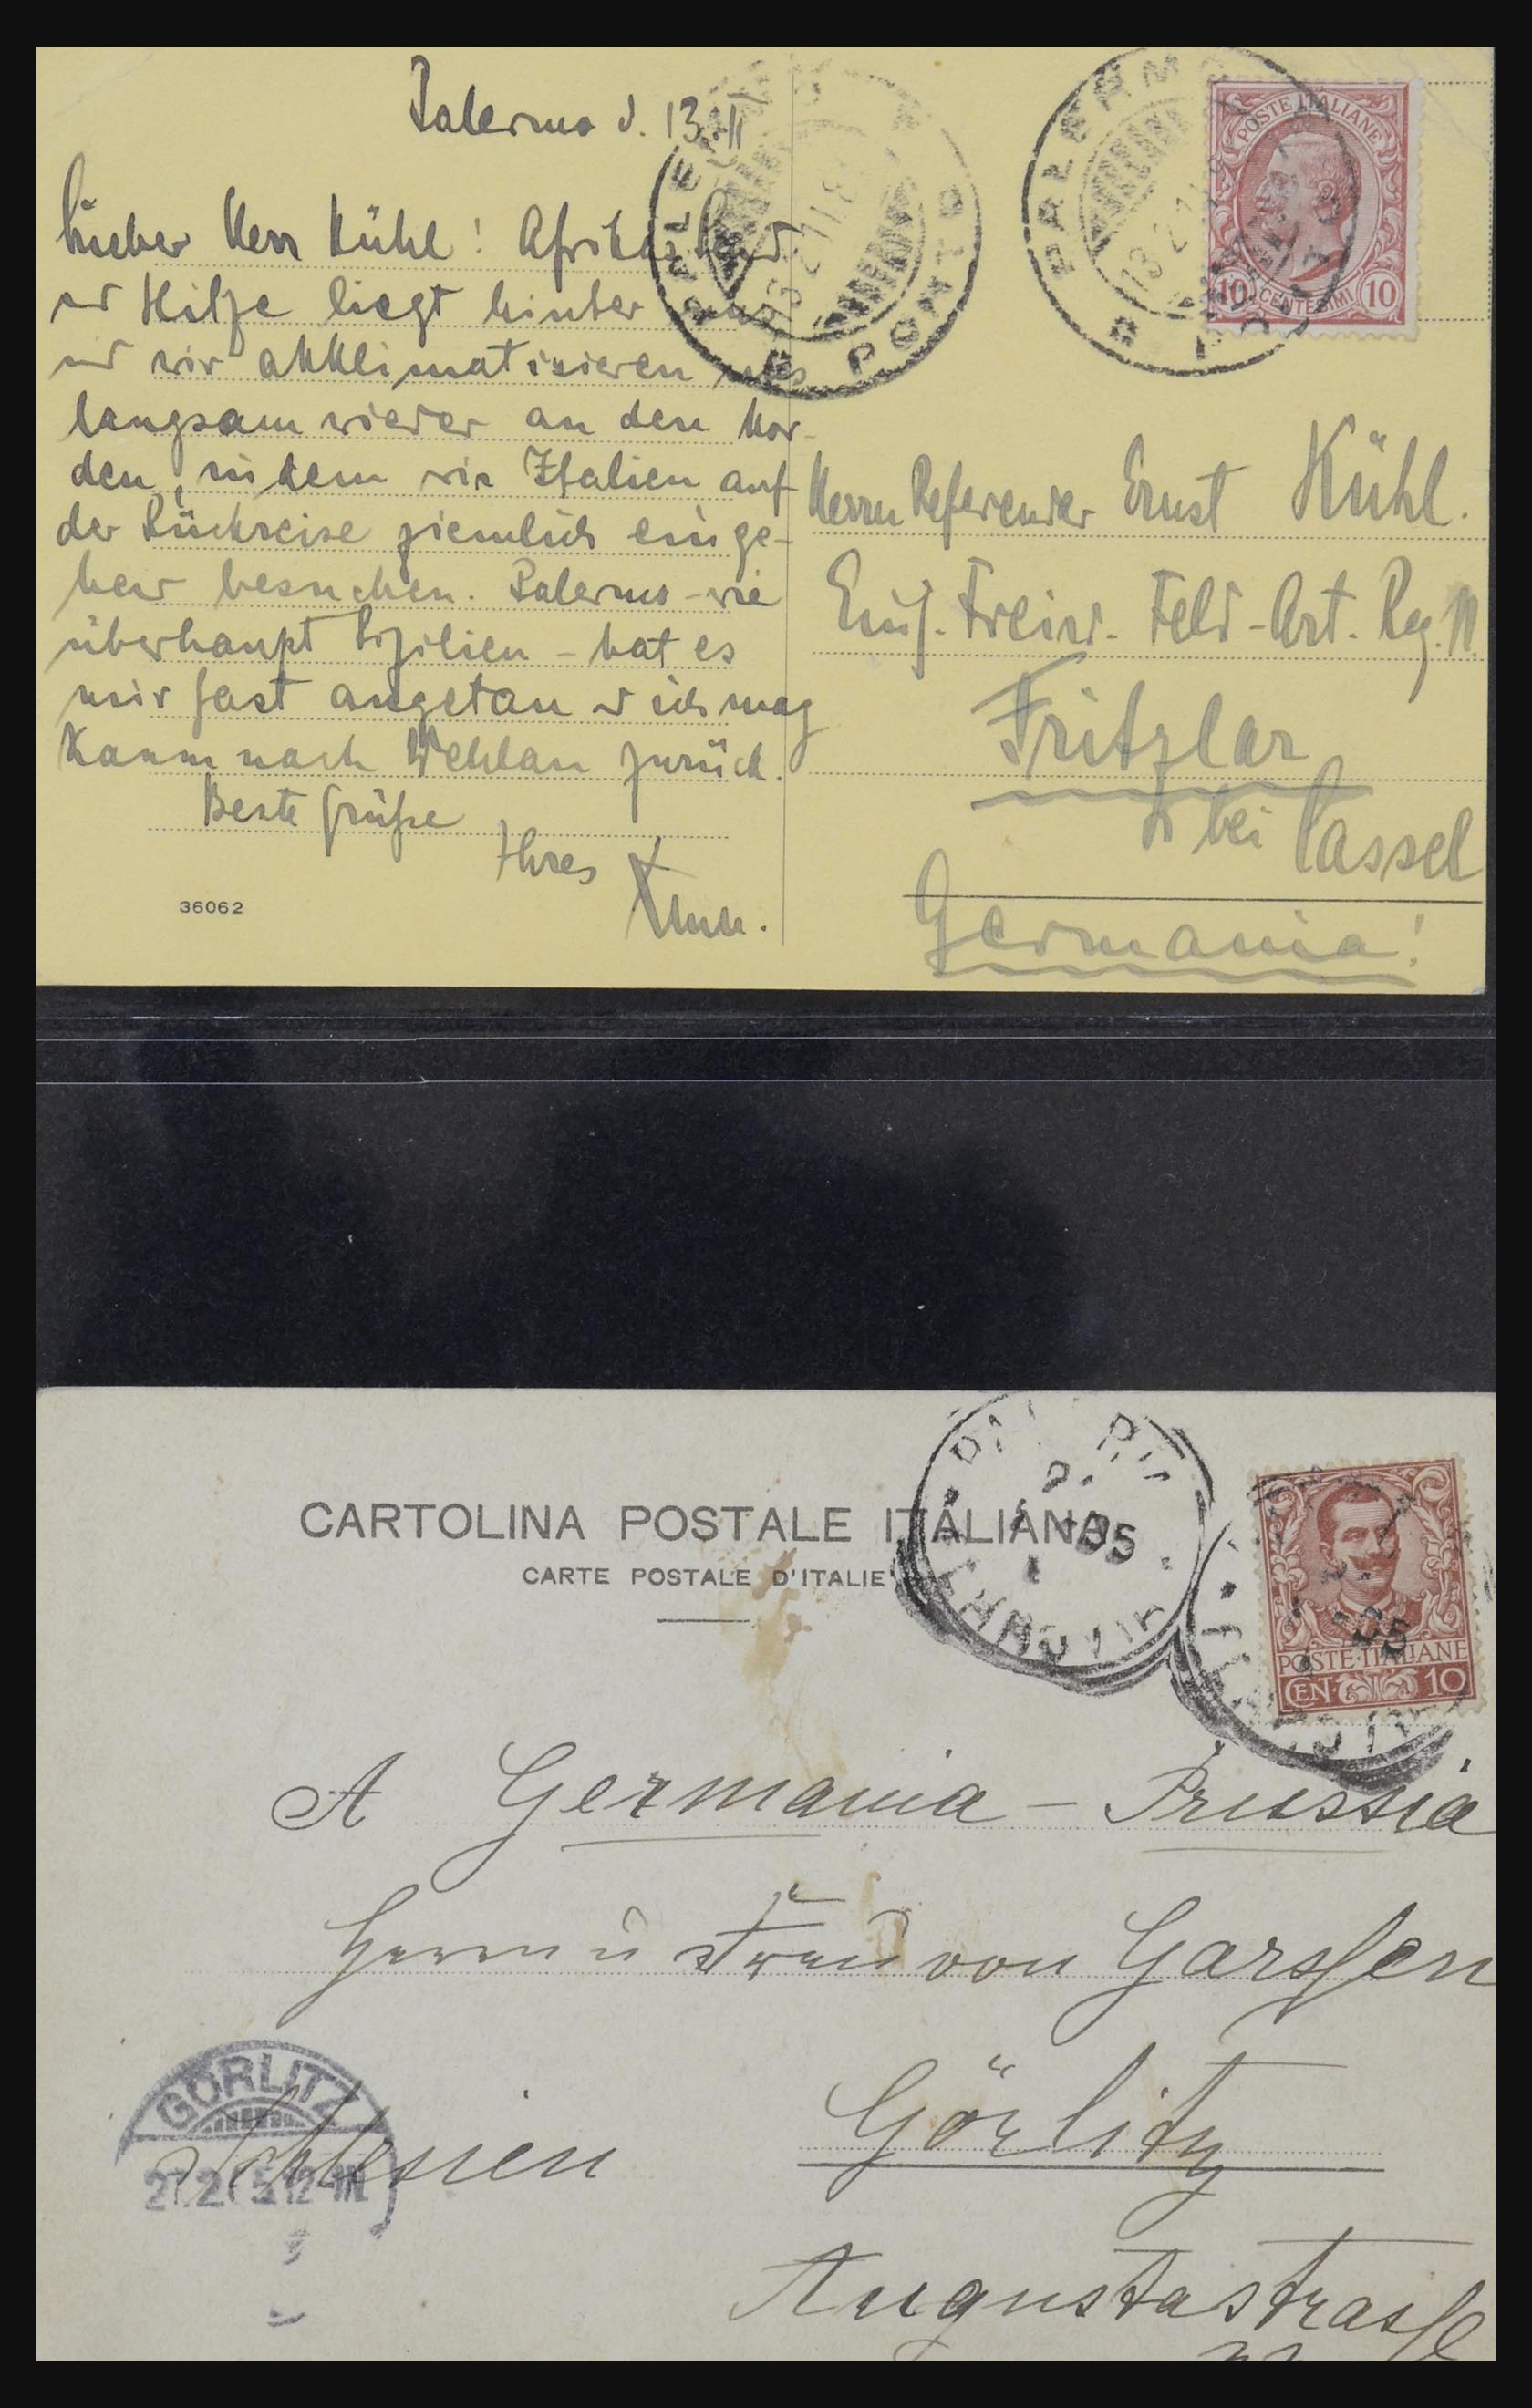 Palermo d. 13. II
Lieber Herr Kühl! Afrikas Sand
und Hitze liegt hinter uns
und wir akklimatisieren uns
langsam wieder an den Nor-
den, indem wir Italien auf
der Rückreise ziemlich einge-
hend besuchen. Palermo – wie
überhaupt Sizilien – hat es
mir fast angetan u ich mag
kaum nach Wehlau zurück.
Beste Grüße
Ihres
36062
PALERMO
PORTO
PALERMO
13
POSTE ITALIANE
10 CENTESIMI 10
Herrn Referendar Ernst Kühl.
Einj. Freiw. Feld-Art. Reg. 11.
Fritzlar
bei Cassel
Germania!
CARTOLINA POSTALE ITALIANA
CARTE POSTALE D'ITALIE
05
05
POSTE·ITALIANE
CEN· 10
A Germania – Prussia
Herrn u Frau von Garssen
Görlitz
GÖRLITZ
Schlesien
Augustastrasse